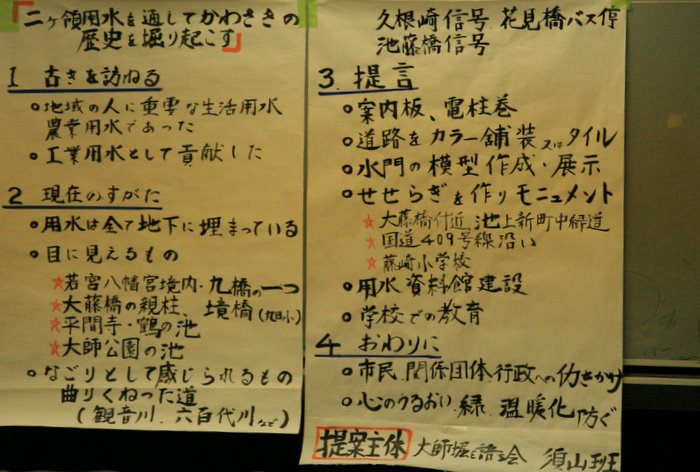 二ヶ領用水を通してかわさきの
歴史を堀り起こす」
1 古きを訪ねる
○地域の人に重要な生活用水
農業用水であった
○工業用水として貢献した
2 現在のすがた
○用水は全て地下に埋まっている
○目に見えるもの
☆若宮八幡宮境内・九橋の一つ
☆大藤橋の親柱、境橋(九日小)
☆平間寺・鶴の池
☆大師公園の池
○なごりとして感じられるもの
曲りくねった道
(観音川、六百代川など)
久根崎信号、花見橋バス停
池藤橋信号
3.提言
○案内板、電柱巻
○道路をカラー舗装又はタイル
○水門の模型作成・展示
○せせらぎを作りモニュメント
☆大藤橋付近、池上新町中緑道
☆国道409号線沿い
☆藤崎小学校
○用水資料館建設
○学校での教育
4 おわりに
○市民、関係団体、行政への働きかけ
○心のうるおい、緑、温暖化防ぐ
提案主体 大師堀を語る会 須山班